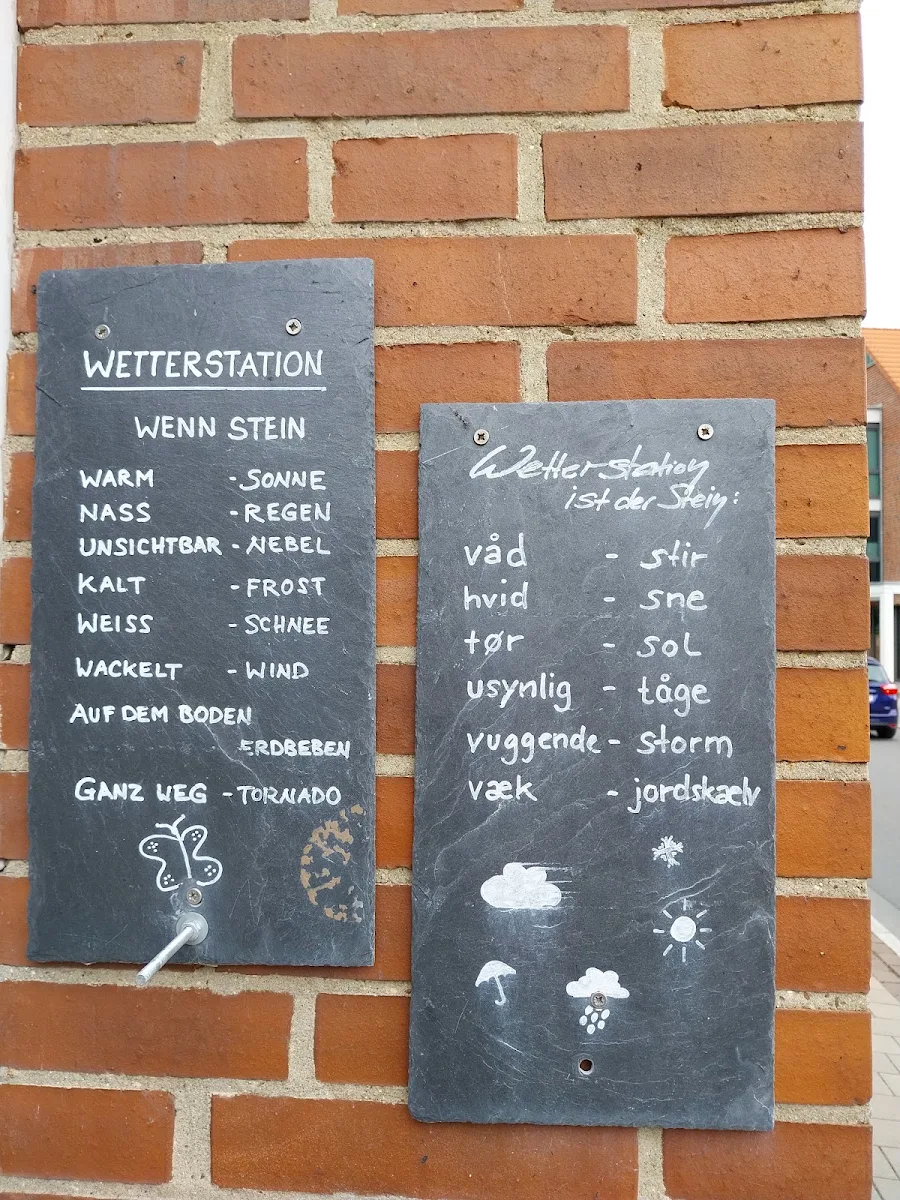 WETTERSTATION
WENN STEIN
WARM - SONNE
NASS - REGEN
UNSICHTBAR - NEBEL
KALT - FROST
WEISS - SCHNEE
WACKELT - WIND
AUF DEM BODEN
ERDBEBEN
GANZ WEG - TORNADO
Wetterstation
ist der Stein:
våd - stir
hvid - sne
tør - sol
usynlig - tåge
vuggende - storm
væk - jordskælv